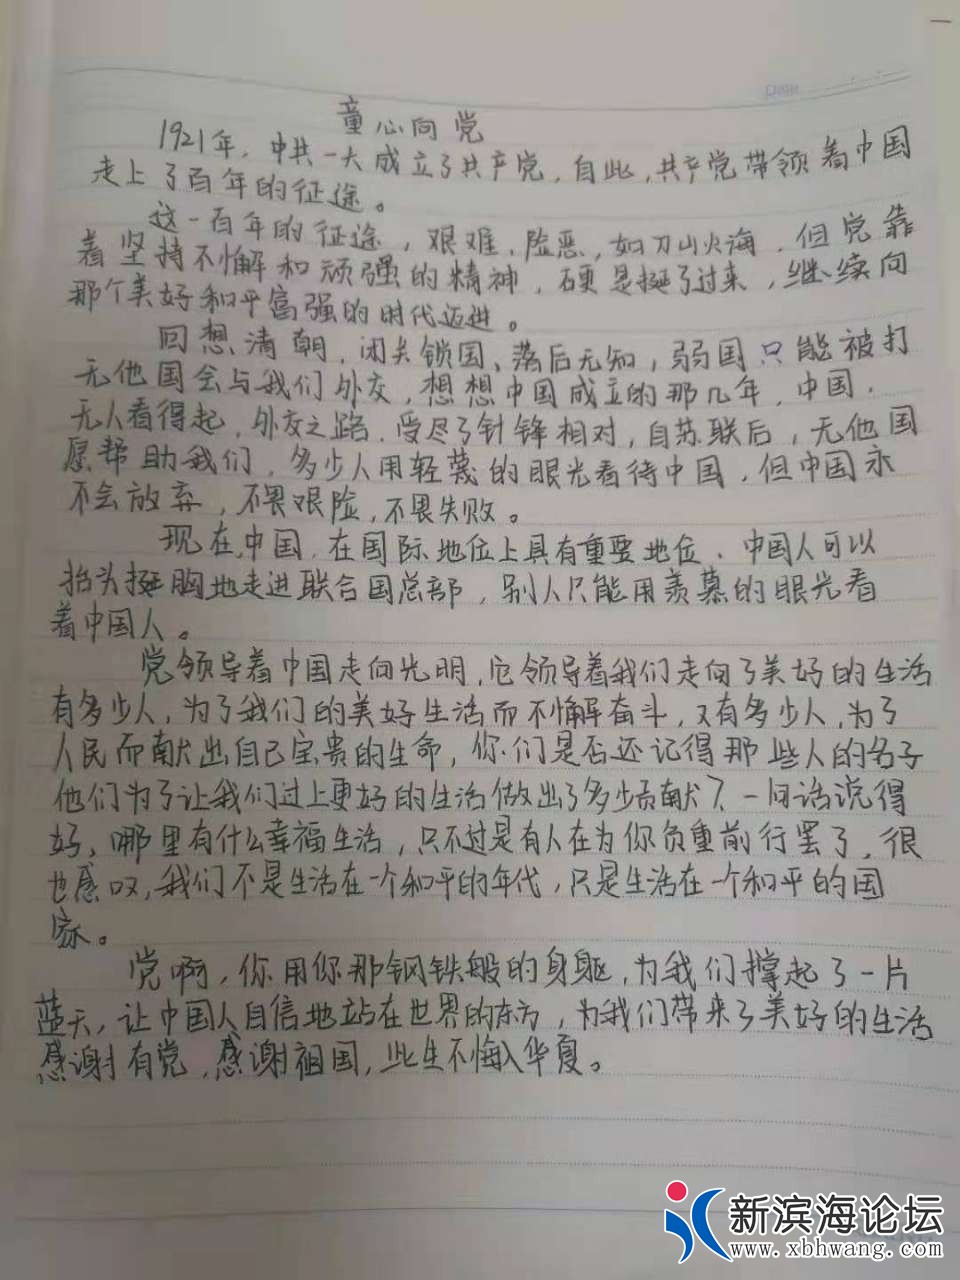 Date
童心向党
1921年，中共一大成立了共产党，自此，共产党带领着中国
走上了百年的征途。
这一百年的征途，艰难、险恶，如刀山火海，但党靠
着坚持不懈和顽强的精神，硬是挺了过来，继续向
那个美好和平富强的时代迈进。
回想清朝，闭关锁国、落后无知，弱国只能被打
无他国会与我们外交，想想中国成立的那几年，中国，
无人看得起，外交之路，受尽了针锋相对，自苏联后，无他国
愿帮助我们，多少人用轻蔑的眼光看待中国，但中国永
不会放弃，不畏艰险，不畏失败。
现在，中国，在国际地位上具有重要地位，中国人可以
抬头挺胸地走进联合国总部，别人只能用羡慕的眼光看
着中国人。
党领导着中国走向光明，它领导着我们走向了美好的生活
有多少人，为了我们的美好生活而不懈奋斗，又有多少人，为了
人民而献出自己宝贵的生命，你们是否还记得那些人的名子
他们为了让我们过上更好的生活做出了多少贡献？一句话说得
好，哪里有什么幸福生活，只不过是有人在为你负重前行罢了，很
也感叹，我们不是生活在一个和平的年代，只是生活在一个和平的国
家。
党啊，你用你那钢铁般的身躯，为我们撑起了一片
蓝天，让中国人自信地站在世界的东方，为我们带来了美好的生活
感谢有党，感谢祖国，此生不悔入华夏。
新滨海论坛
www.xbhwang.com